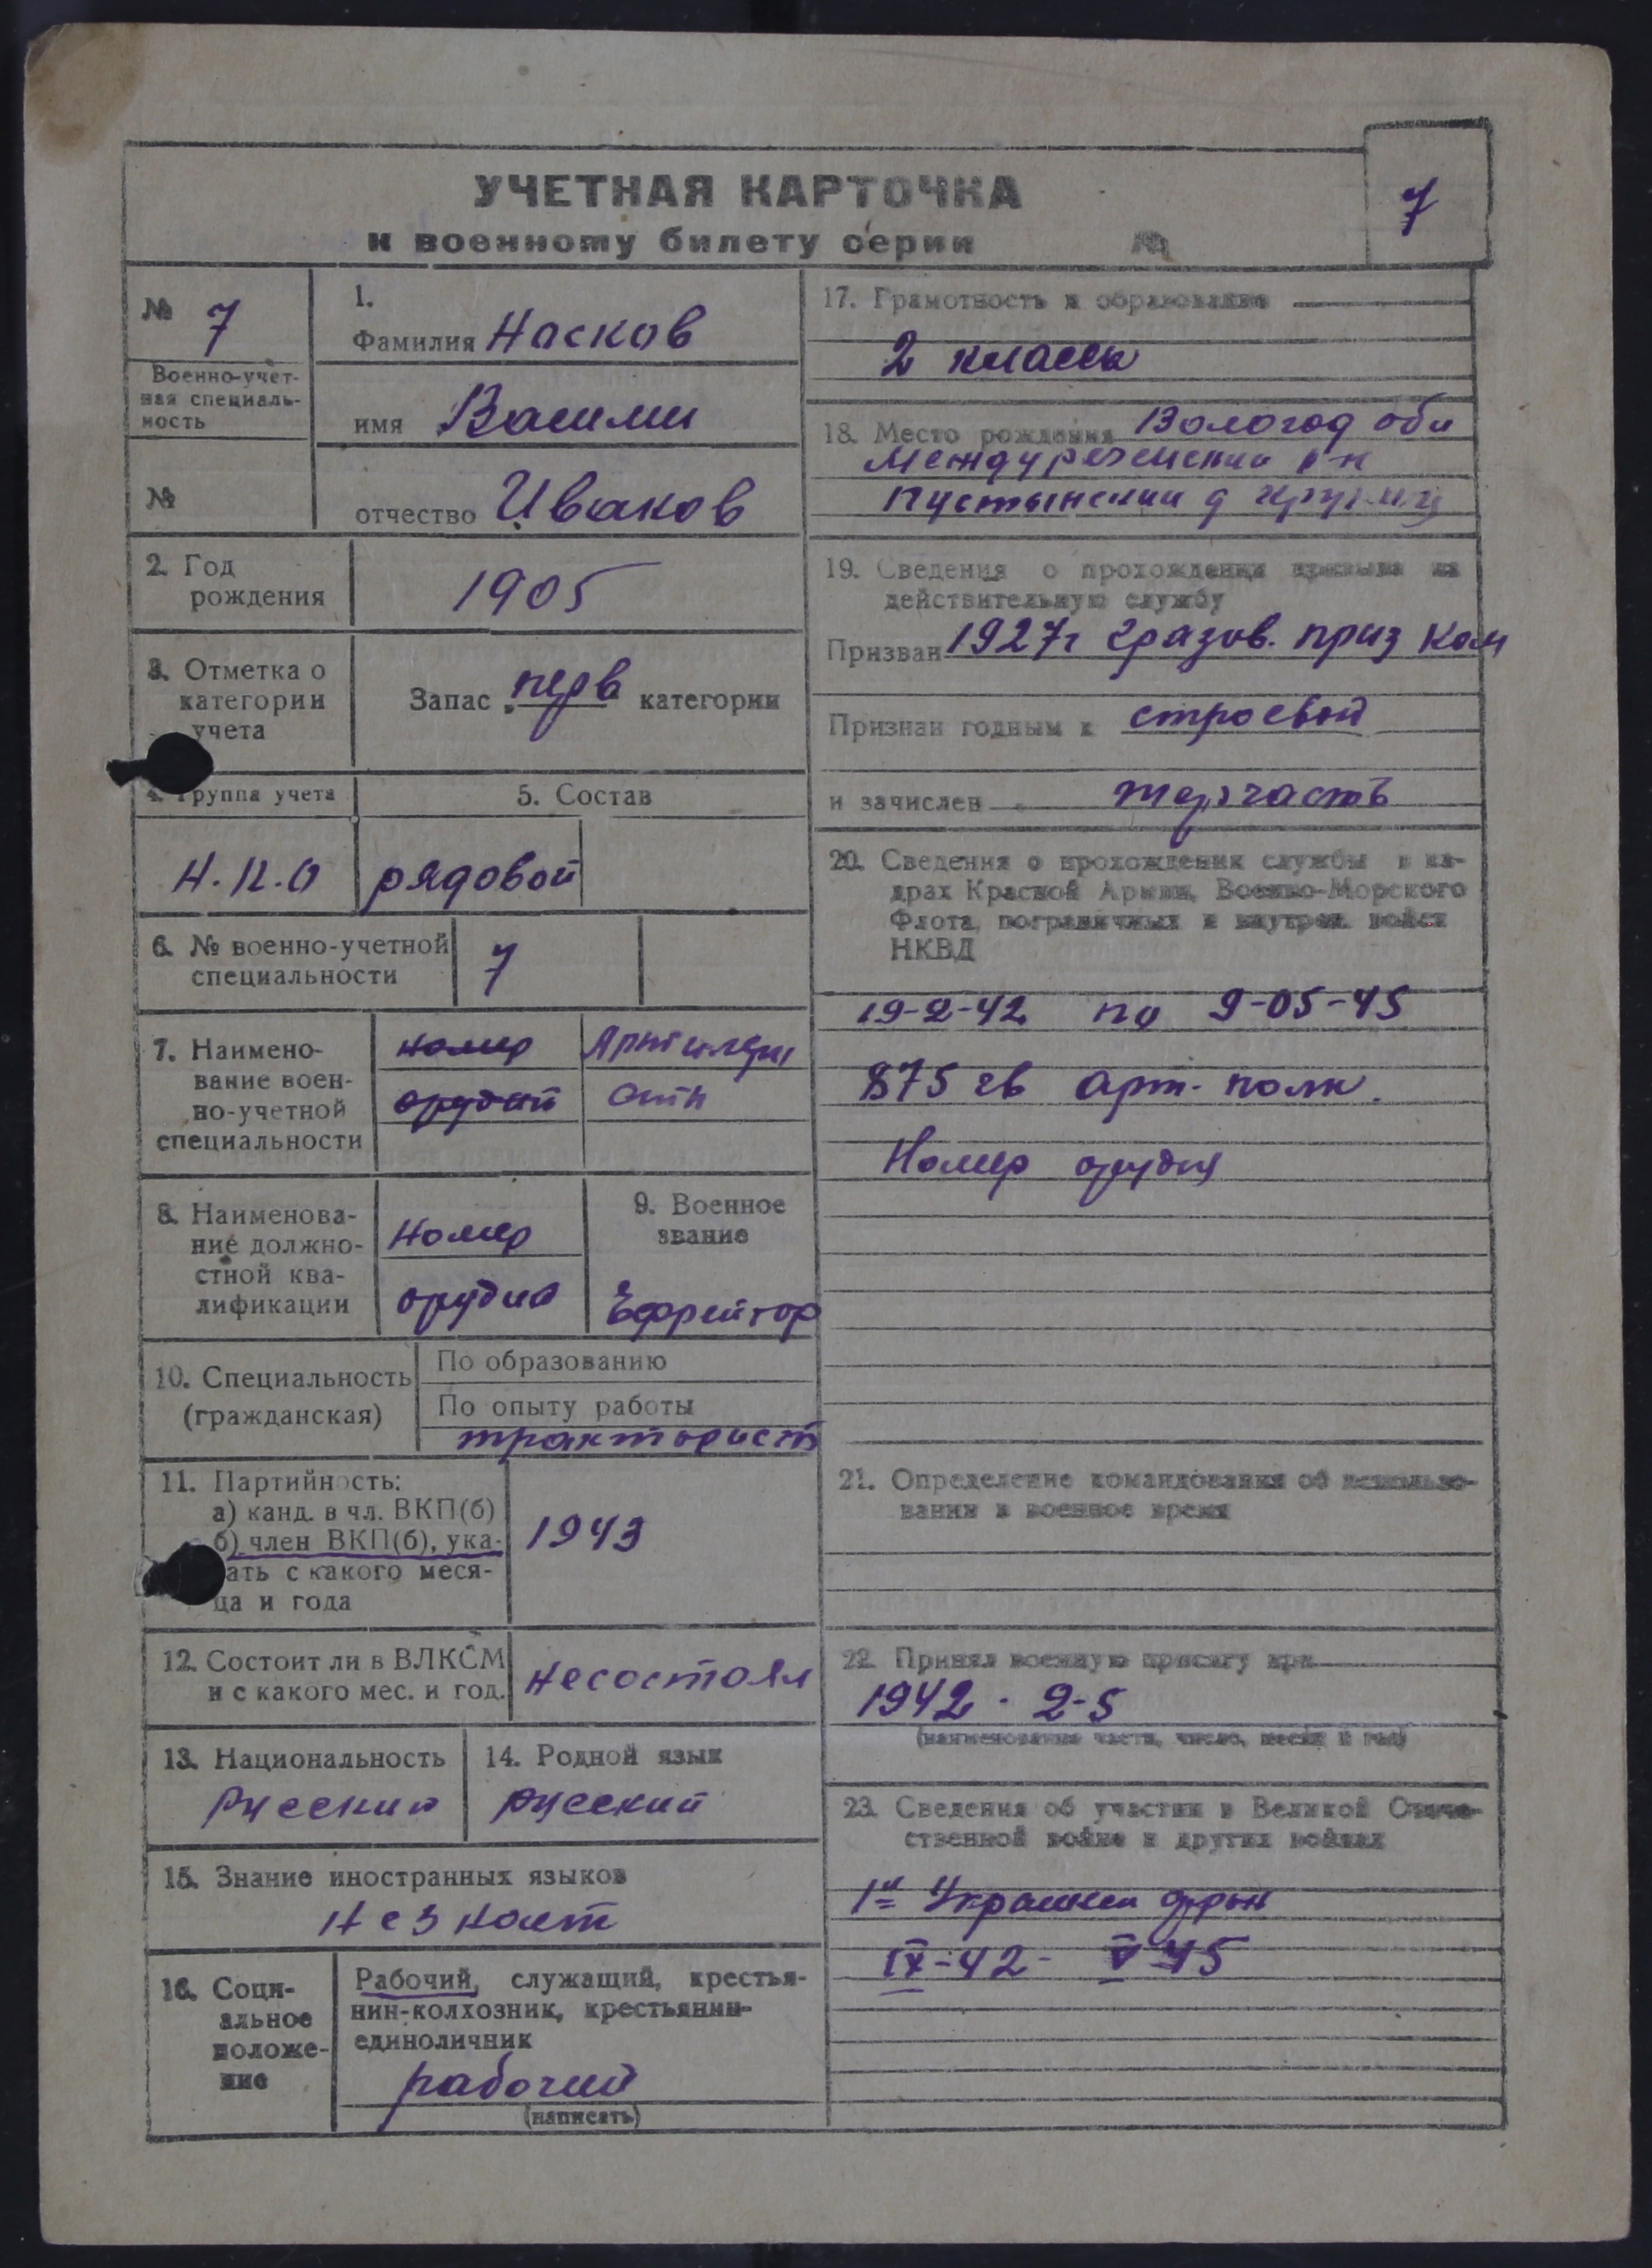 УЧЕТНАЯ КАРТОЧКА
к военному билету серии №
7
№ 7
Военно-учет-
ная специаль-
ность
№
1.
Фамилия Насков
имя Васили
отчество Иваков
2. Год
рождения
1905
3. Отметка о
категории
учета
Запас перв категории
4. Группа учета
5. Состав
Н.К.О
рядовой
6. № военно-учетной
специальности
7
7. Наимено-
вание воен-
но-учетной
специальности
номер
орудий
Артилери
8. Наименова-
ние должно-
стной ква-
лификации
Номер
орудия
9. Военное
звание
Ефрейтор
10. Специальность
(гражданская)
По образованию
По опыту работы
тракторист
11. Партийность:
а) канд. в чл. ВКП(б)
б) член ВКП(б), ука-
ать с какого меся-
ца и года
1943
12. Состоит ли в ВЛКСМ
и с какого мес. и год.
несостоял
13. Национальность
Русский
14. Родной язык
русский
15. Знание иностранных языков
незнает
16. Соци-
альное
положе-
ние
Рабочий, служащий, крестья-
нин-колхозник, крестьянин-
единоличник
рабочий
(написать)
17. Грамотность и образование
2 класса
18. Место рождения Вологод обл
Междуреченский р-н
Пустынский д
19. Сведения о прохождении призыва на
действительную службу
Призван 1927г Грязов. приз ком
Признан годным к строевой
и зачислен терчасть
20. Сведения о прохождении службы в ка-
драх Красной Армии, Военно-Морского
Флота, пограничных и внутрен. войск
НКВД
19-2-42 по 9-05-45
875 гв арт. полк.
Номер орудия
21. Определение командования об использо-
вании в военное время
22. Принял военную присягу при
1942 · 2-5
(наименование части, число, месяц и год)
23. Сведения об участии в Великой Отече-
ственной войне и других войнах
1й Украинск фрон
IX-42- V-45